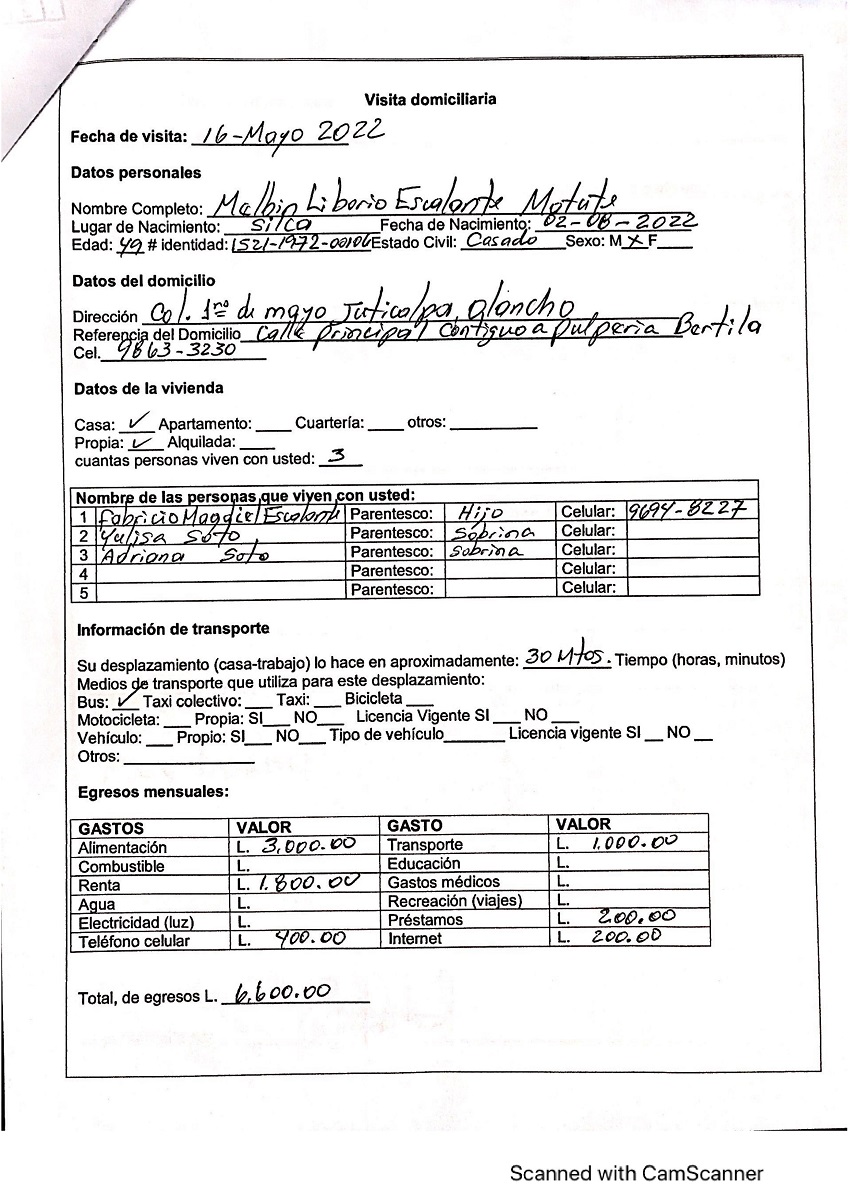 Visita domiciliaria
Fecha de visita: 16-Mayo 2022
Datos personales
Nombre Completo: Malbin Liborio Escalante Matute
Lugar de Nacimiento: Silca Fecha de Nacimiento: 02-08-2022
Edad: 49 # identidad: 1521-1972-00106 Estado Civil: Casado Sexo: M X F
Datos del domicilio
Dirección Col. 1ro de mayo Juticalpa, Olancho
Referencia del Domicilio Calle principal contiguo a pulperia Bertila
Cel. 9863-3230
Datos de la vivienda
Casa: ✓ Apartamento: ____ Cuartería: ____ otros: ____
Propia: ✓ Alquilada: ____
cuantas personas viven con usted: 3
Nombre de las personas que viven con usted:
1 Fabricio Maggdiel Escalante Parentesco: Hijo Celular: 9694-8227
2 Yulisa Soto Parentesco: Sobrina Celular:
3 Adriana Soto Parentesco: Sobrina Celular:
4 Parentesco: Celular:
5 Parentesco: Celular:
Información de transporte
Su desplazamiento (casa-trabajo) lo hace en aproximadamente: 30 Mtos. Tiempo (horas, minutos)
Medios de transporte que utiliza para este desplazamiento:
Bus: ✓ Taxi colectivo: ____ Taxi: ____ Bicicleta ____
Motocicleta: ____ Propia: SI____ NO____ Licencia Vigente SI ____ NO ____
Vehículo: ____ Propio: SI____ NO____ Tipo de vehículo____ Licencia vigente SI ____ NO ____
Otros: ____
Egresos mensuales:
GASTOS VALOR GASTO VALOR
Alimentación L. 3,000.00 Transporte L. 1,000.00
Combustible L. Educación L.
Renta L. 1,800.00 Gastos médicos L.
Agua L. Recreación (viajes) L.
Electricidad (luz) L. Préstamos L. 200.00
Teléfono celular L. 400.00 Internet L. 200.00
Total, de egresos L. 6,600.00
Scanned with CamScanner